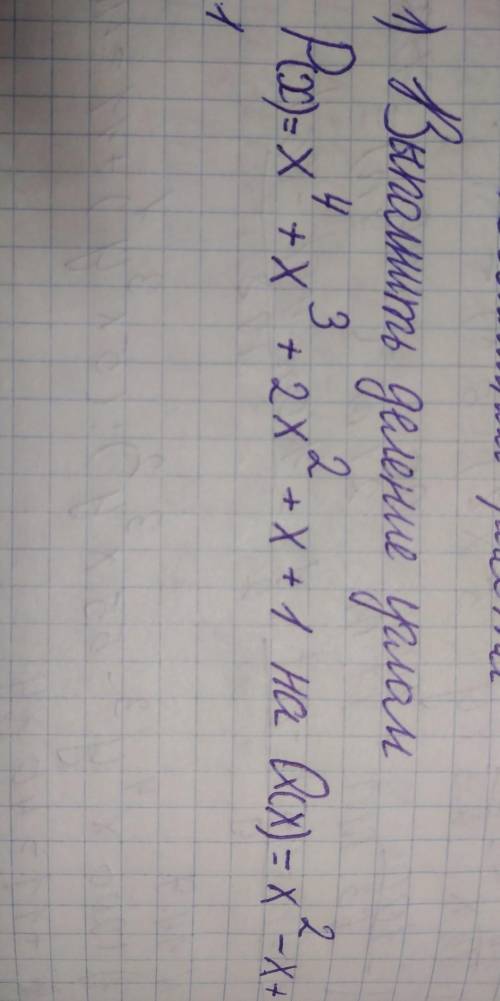 1) Выполнить деление углом
P(x) = x⁴ + x³ + 2x² + x + 1 на Q(x) = x² - x +
1